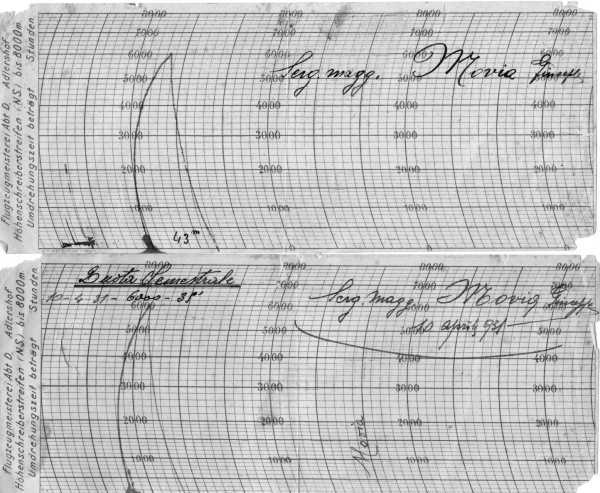 Flugzeugmeisterei Abt D, Adlershof
Höhenschreiberstreifen (NS) bis 8000m
Umdrehungszeit beträgt Stunden
8000 8000 8000 8000
7000 7000 7000 7000
6000 6000 6000 6000
5000 5000 5000 5000
4000 4000 4000 4000
3000 3000 3000 3000
2000 2000 2000 2000
1000 1000 1000 1000
0 0 0
Serg. magg. Movia Giuseppe
43 m
Flugzeugmeisterei Abt D, Adlershof
Höhenschreiberstreifen (NS) bis 8000m
Umdrehungszeit beträgt Stunden
8000 8000 8000 8000
7000 7000 7000
6000 6000
5000 5000 5000 5000
4000 4000 4000 4000
3000 3000 3000 3000
2000 2000 2000 2000
1000 1000 1000 1000
Quota Semestrale
10-4-31-6000-38'
Serg. magg. Movia Giuseppe
10 aprile 931
Movia